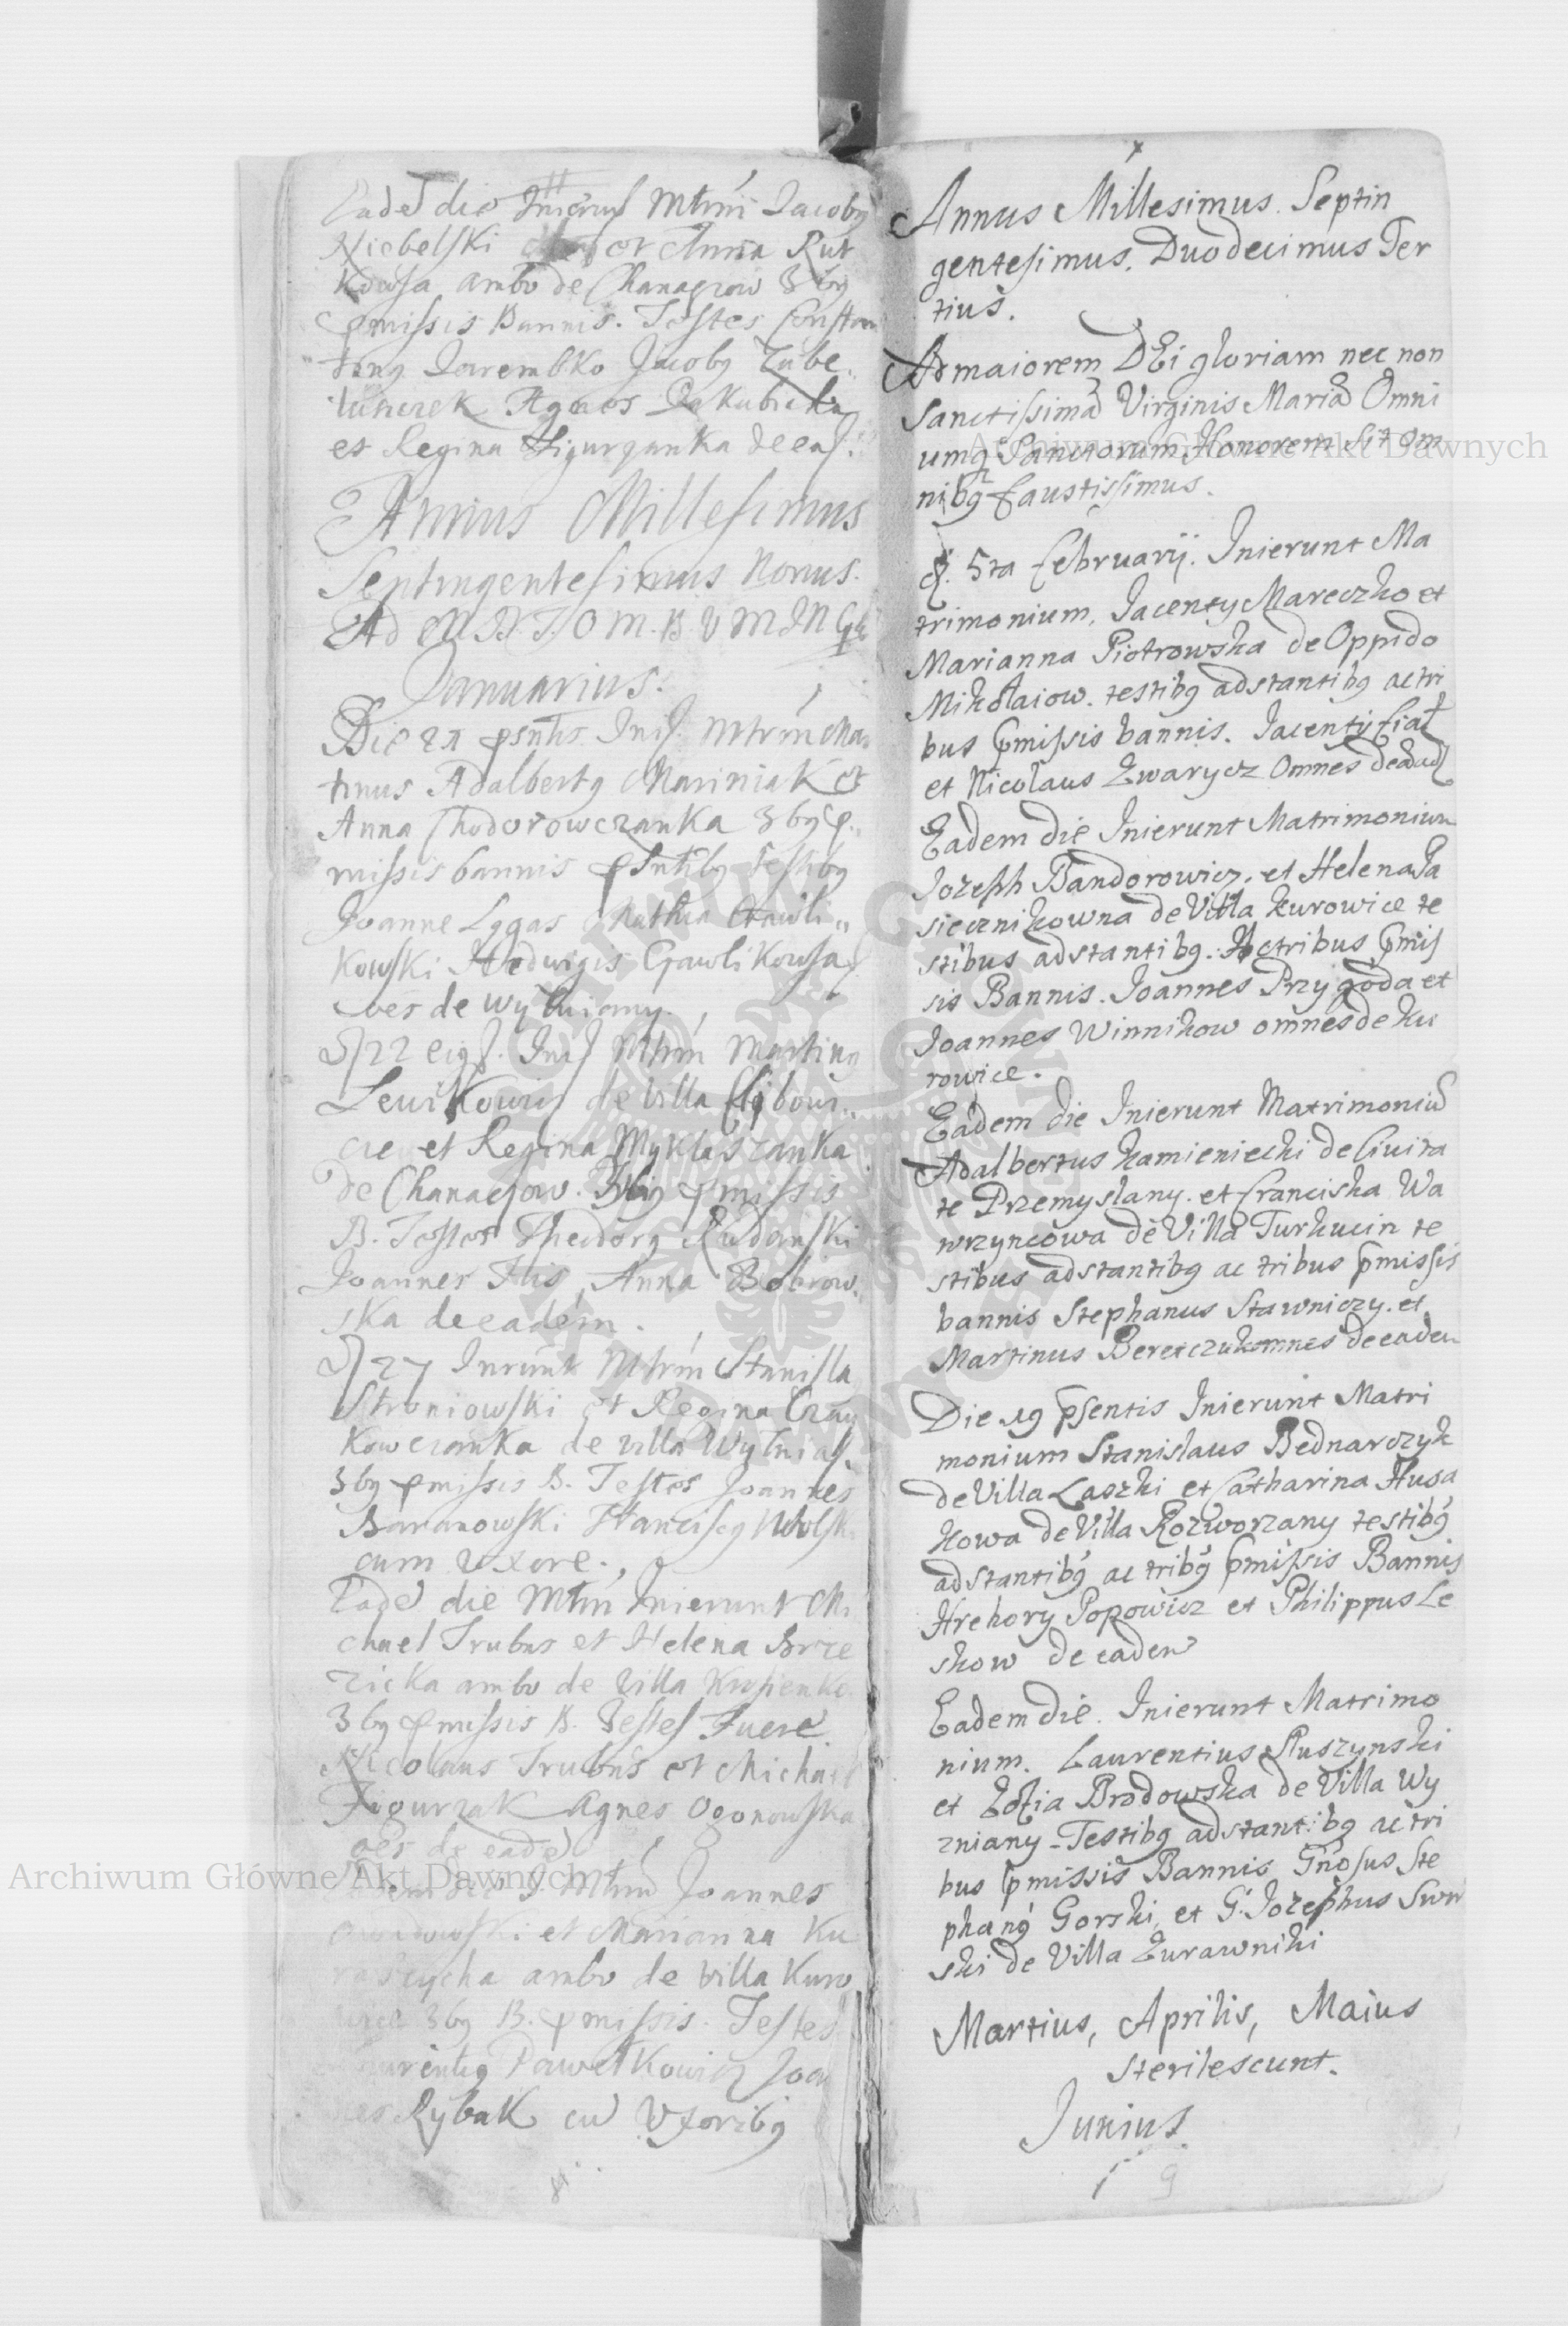 Eadē die Inierūs Mtrm̄ Jacobꝰ
Niebelski et Anna Rut
kowsa ambo de Chanaczow 3bꝰ
pmissis Bannis. Testes Constan
tinꝰ Jarembko Jacobꝰ
Agnes Jakubicka
et Regina Figurzanka de ead.
Annus Millesimus
Septingentesimus Nonus.
Januarius.
Die 21 psntis Mtrm̄ Ma
tinus Adalbertꝰ Mariniak et
Anna Chodorowczanka 3bꝰ p
missis bannis psntibꝰ Testibꝰ
Joanne Lygas Mathia Gawli
kowski Hedwigis Gawlikowsa
oēs de Wyzniany.
22 Mtrm̄ Martinꝰ
Lewikowicz de Villa
et Regina Myklaszanka
de Chanaczow. 3bꝰ pmissis
B. Testes Theodorꝰ Rudawski
Joannes Flis, Anna Bobrow
ska de eadem.
27 Inrunt Mtrm̄ Stanisla
Stroniowski et Regina Czay
kowczanka de villa Wyzniaṉ.
3bꝰ pmissis B. Testes Joannes
Baranowski Franciscꝰ Wolsk
cum uxore.
Eadē die Mtm̄ Inierunt Mi
chael Trubus et Helena Brze
zicka ambo de Villa Krosienko
3bꝰ pmissis B. Testes Fuerē
Nicolaus Trubus et Michael
Figurzak Agnes Ogonowska
oēs de eadē
Mtrm̄ Joannes
et Marianna Ku
ambo de Villa Kuro
wice 3bꝰ B. pmissis. Testes
Laurentiꝰ Pawełkowicz Joan
nes Rybak cū Uxoribꝰ
Annus Millesimus. Septin
gentesimus. Duodecimus Ter
tius.
Ad maiorem DEi gloriam nec non
Sanctissimæ Virginis Mariæ Omni
umq̢ Sanctorum Honorem Sit om
nibꝰ Faustissimus.
d. 5ta Februarij. Inierunt Ma
trimonium, Jacenty Mareczko et
Marianna Piotrowska de Oppido
Mikołaiow. testibꝰ adstantibꝰ ac tri
bus pmissis bannis. Jacenty
et Nicolaus Zwarycz Omnes de
Eadem die Inierunt Matrimonium
Jozeph Bandorowicz. et Helena Pa
siecznikowna de Villa Kurowice te
stibus adstantibꝰ. Ac tribus pmis
sis Bannis. Joannes Przygoda et
Joannes Winnikow omnes de Ku
rowice.
Eadem die Inierunt Matrimoniū
Adalbertus Kamieniecki de Civita
te Przemyslany. et Franciska Wa
wrzyncowa de Villa Turkucin te
stibus adstantibꝰ ac tribus pmissis
bannis Stephanus Stawniczy. et
Martinus Bereiczuk omnes de eadem
Die 19 psentis Inierunt Matri
monium Stanislaus Bednarczyk
de Villa Laszki et Catharina Husa
kowa de Villa Rozworzany testibꝰ
adstantibꝰ ac tribꝰ pmissis Bannis
Hrehory Popowicz et Philippus Le
skow de eadem
Eadem die. Inierunt Matrimo
nium. Laurentius Ruszynski
et Zofia Brodowska de Villa Wy
zniany. Testibꝰ adstantibꝰ ac tri
bus pmissis Bannis Gnosus Ste
phanꝰ Gorski, et G. Jozephus
ski de Villa Zurawniki
Martius, Aprilis, Maius
sterilescunt.
Junius
9
Archiwum Główne Akt Dawnych
Archiwum Główne Akt Dawnych